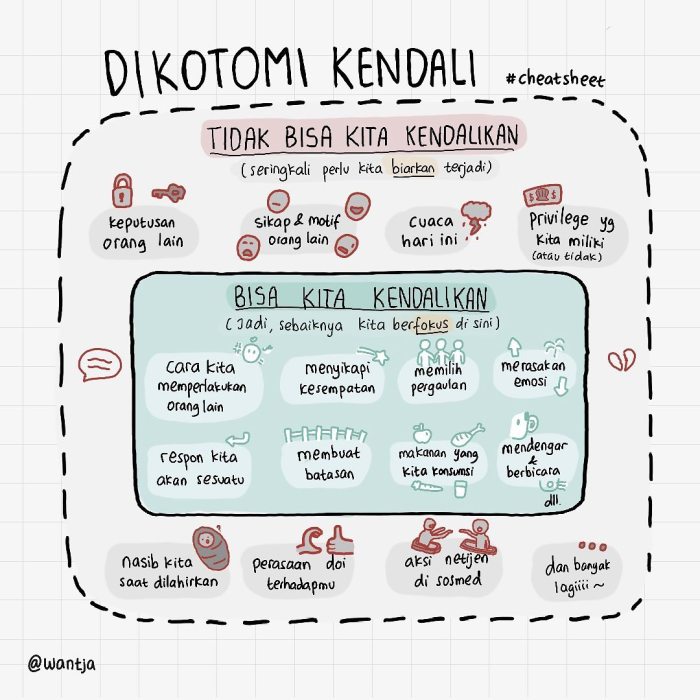 DIKOTOMI KENDALI #cheatsheet
TIDAK BISA KITA KENDALIKAN
(seringkali perlu kita biarkan terjadi)
keputusan
orang lain
sikap & motif
orang lain
cuaca
hari ini
privilege yg
kita miliki
(atau tidak)
BISA KITA KENDALIKAN
(Jadi, sebaiknya kita berfokus di sini)
cara kita
memperlakukan
orang lain
menyikapi
kesempatan
memilih
pergaulan
merasakan
emosi
respon kita
akan sesuatu
membuat
batasan
makanan yang
kita konsumsi
mendengar
&
berbicara
dll.
nasib kita
saat dilahirkan
perasaan doi
terhadapmu
aksi netijen
di sosmed
dan banyak
lagiiii ~
@wantja